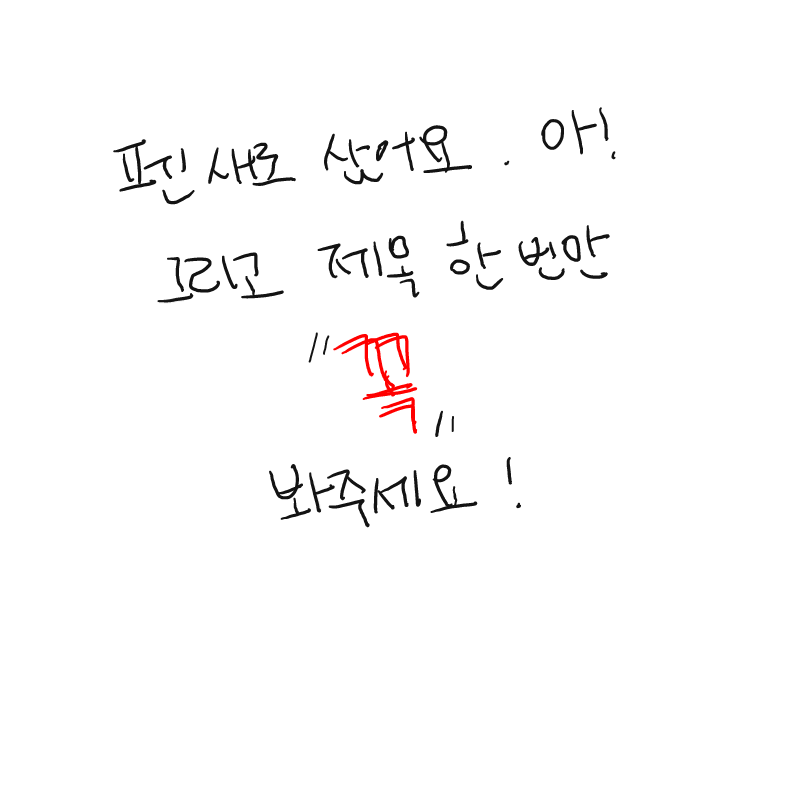 펜 새로 샀어요. 아!
그리고 제목 한 번만
"꼭"
봐주세요!